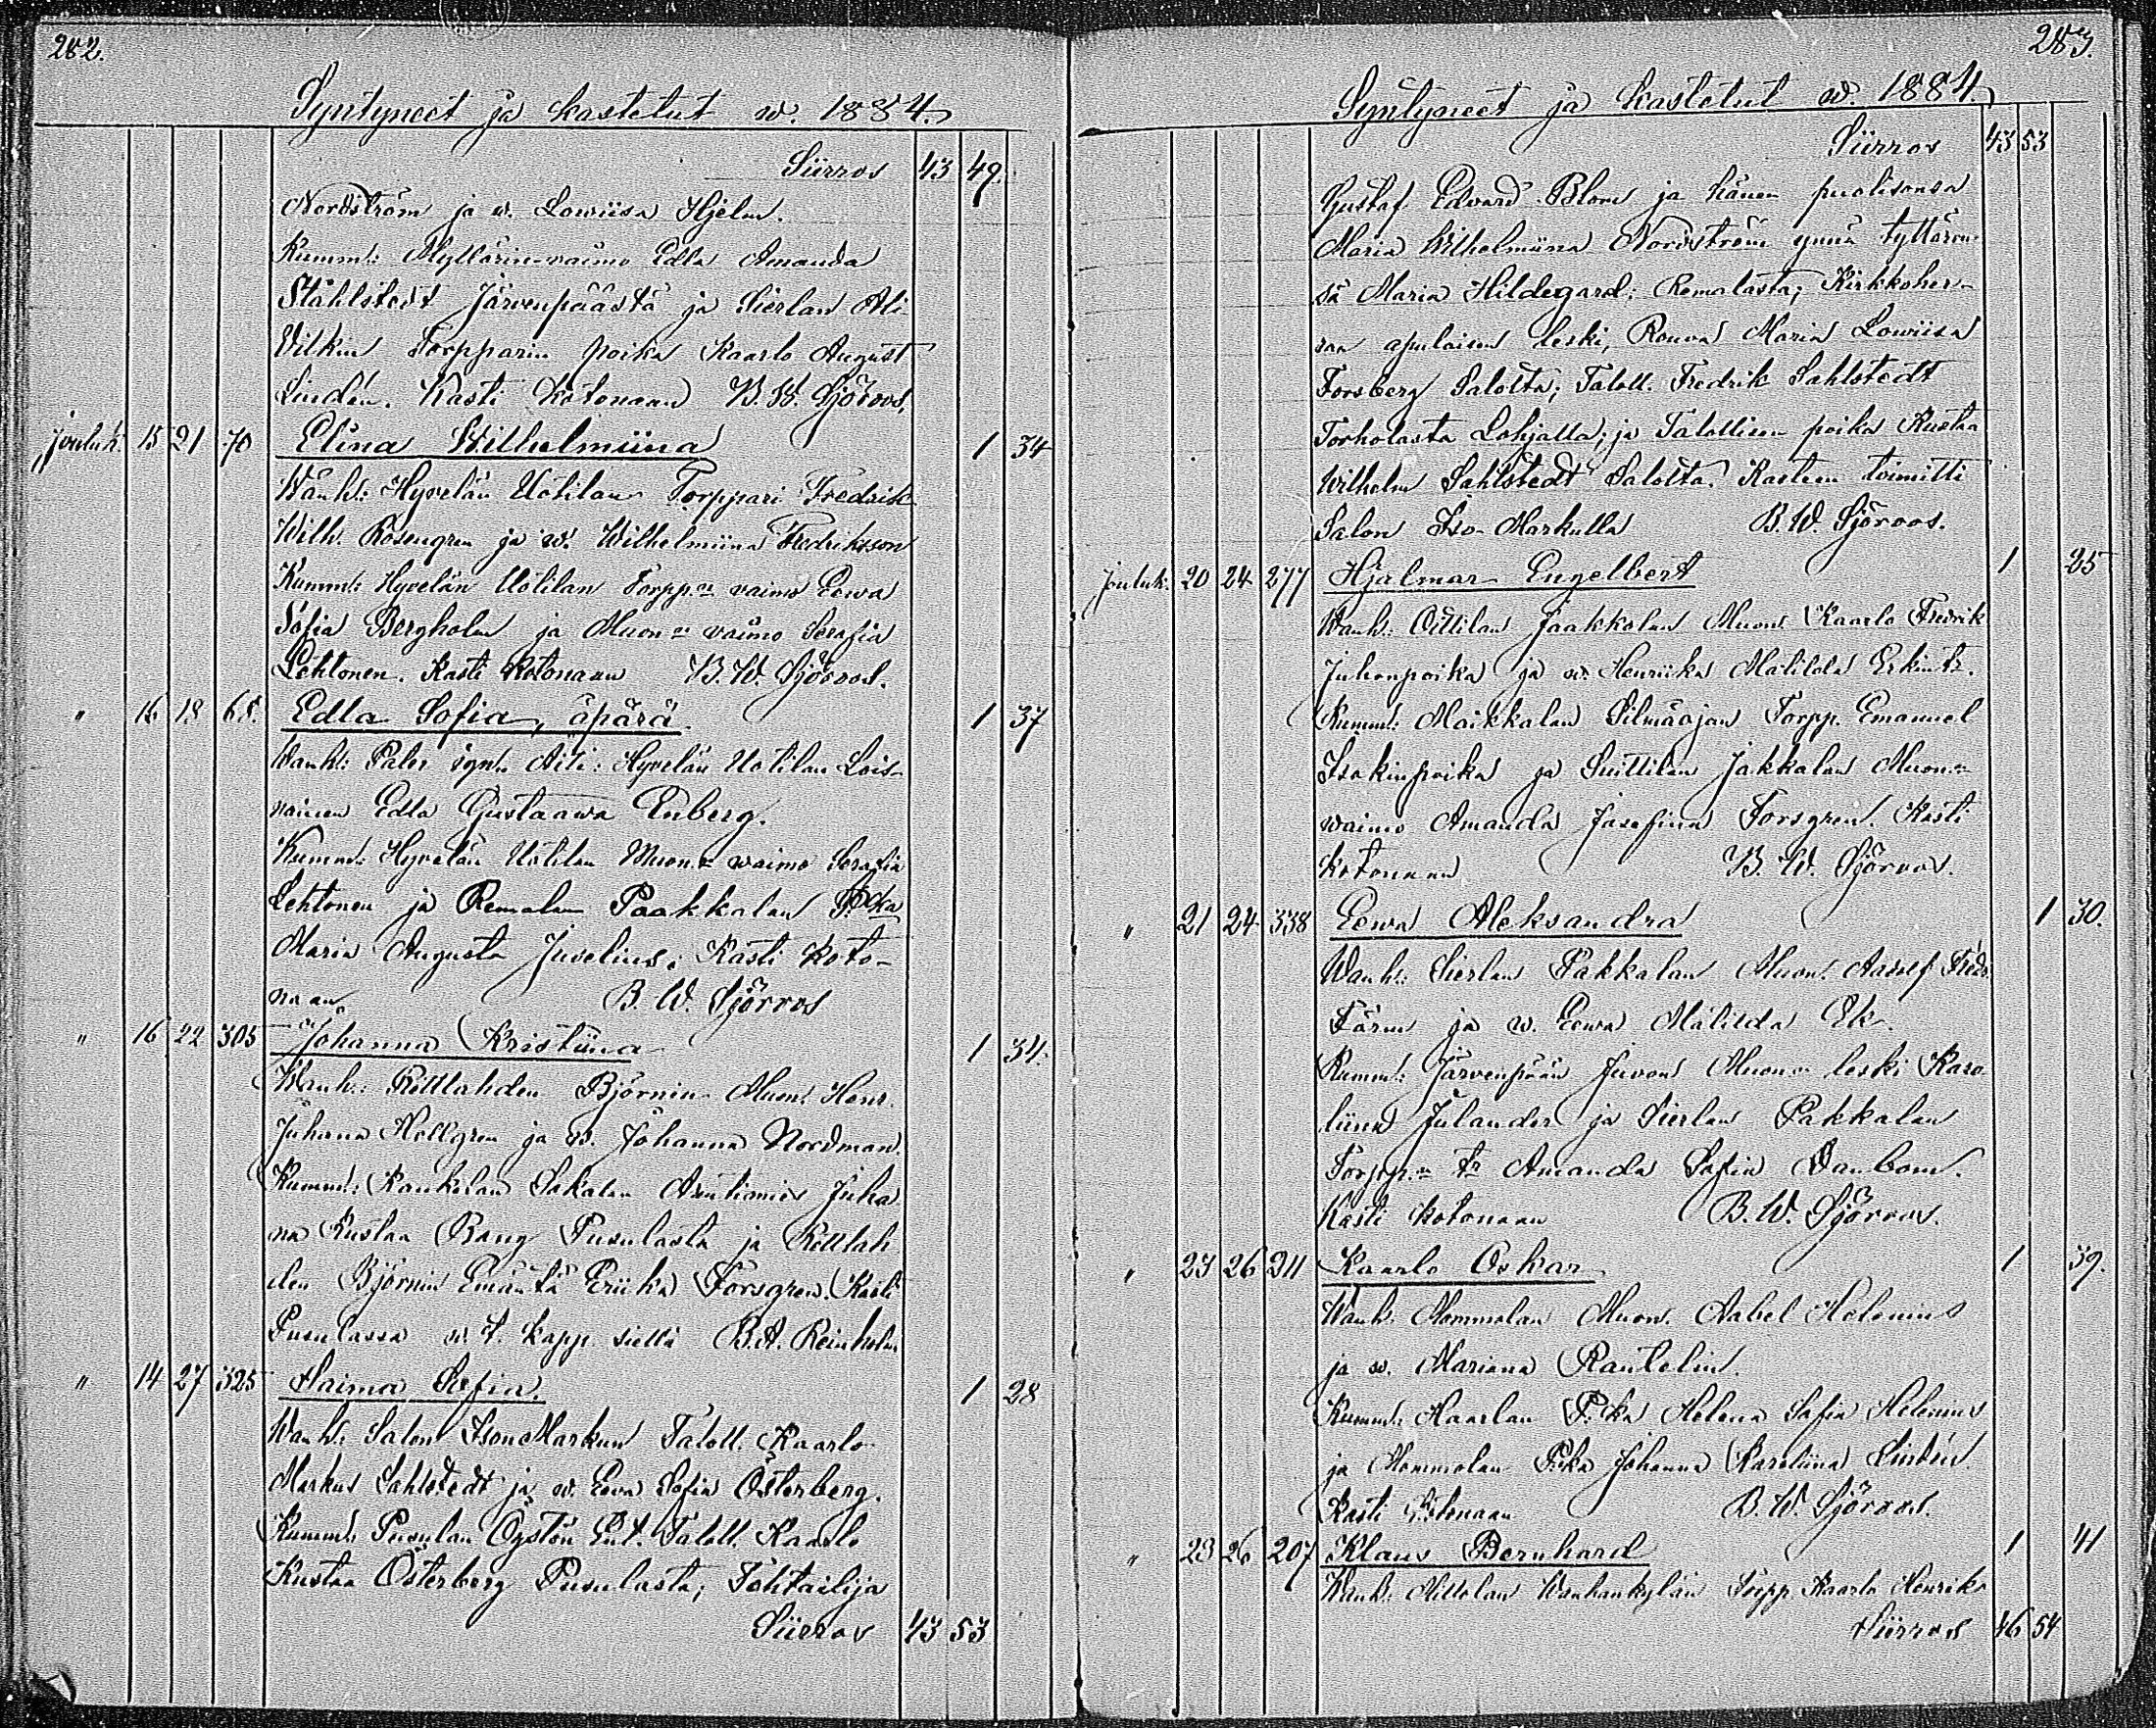 282.
Syntyneet ja kastetut w. 1884.
Siirros 43 49.
Nordström ja w. Lowiisa Hjelm.
Kumm: Myllärin-vaimo Edla Amanda
Ståhlstedt Järvenpäästä ja Sierlan Ali
Vilkin Torpparin poika Kaarlo August
Lindén. Kasti kotonaan B. W. Sjöroos.
jouluk. 15 21 70 Elina Wilhelmiina 1 34
Wanh: Hyvelän Uotilan Torppari Fredrik
Wilh. Rosengren ja w. Wilhelmiina Fredriksson
Kumm: Hyvelän Uotilan Torpp:n vaimo Eewa
Sofia Bergholm ja Muon:n vaimo Serafia
Lehtonen. Kasti kotonaan B. W. Sjöroos.
" 15 18 68. Edla Sofia, äpärä 1 37
Wanh: Pater ign. Äiti: Hyvelän Uotilan Lois-
nainen Edla Gustaawa Enberg.
Kumm: Hyvelän Uotilan Muon:n waimo Serafia
Lehtonen ja Remalan Paakkalan P:ka
Maria Augusta Juselius. Kasti koto-
naan B. W. Sjöroos
" 16 22 305 Johanna Kristiina 1 34.
Wanh: Rettlahden Björnin Muon. Henr.
Juhana Hellgren ja w. Johanna Nordman.
Kumm: Kaukolan Sakalan Asutismies Juha-
na Kustaa Rang Pusulasta ja Rettlah-
den Björnin Emäntä Eriika Forsgren. Kasti
Pusulassa w. t. kapp. siellä B. A. Reinholm
" 14 27 325 Saima Sofia. 1 28
Wanh: Salon IsonMarkun Taloll. Kaarlo
Markus Sahlstedt ja w. Eewa Sofia Österberg.
Kumm: Pusulan Öystön Ent. Taloll. Kaarlo
Kustaa Österberg Pusulasta; Tehtailija
Siirros 43 53
283.
Syntyneet ja kastetut w. 1884.
Siirros 43 53
Gustaf Edvard Blom ja hänen puolisonsa
Maria Wilhelmiina Nordström ynnä tyttären-
sä Maria Hildegard. Remalasta; Kirkkoher-
ran apulaisen leski, Rouva Maria Lowiisa
Forsberg Salosta; Taloll. Fredrik Sahlstedt
Torholasta Lohjalla; ja Talollisen poika Kustaa
Wilhelm Sahlstedt Salosta. Kasteen toimitti
Salon Iso-Markulla B. W. Sjöroos.
jouluk. 20 24 277 Hjalmar Engelbert 1 25
Wanh: Oittilan Jaakkolan Muon. Kaarlo Fredrik
Juhonpoika ja w. Henriika Matilda Erkint:r.
Kumm: Maikkalan Silmäojan Torpp. Emanuel
Isakinpoika ja Suittilan Jakkolan Muon:n
waimo Amanda Josefina Forsgren. Kasti
kotonaan B. W. Sjöroos.
" 21 24 338 Eewa Aleksandra 1 30.
Wanh: Sierlan Pakkalan Muon. Aadolf Fredr.
Färm ja w. Eewa Matilda Ek.
Kumm: Järvenpään Juvan Muon:n leski Karo-
liina Julander ja Sierlan Pakkalan
Torpp:n t:r Amanda Sofia Danbom.
Kasti kotonaan B. W. Sjöroos.
" 23 26 211 Kaarlo Oskar 1 39.
Wanh. Mommolan Muon. Aabel Helenius
ja w. Mariana Rautelin.
Kumm: Haarlan P:ka Helena Sofia Helenius
ja Mommolan P:ka Johanna Karoliina Lindén
Kasti kotonaan B. W. Sjöroos.
" 23 26 207 Klaus Bernhard 1 41
Wanh: Ahtolan Wanhankylän Torpp. Kaarlo Henrik
Siirros 46 54